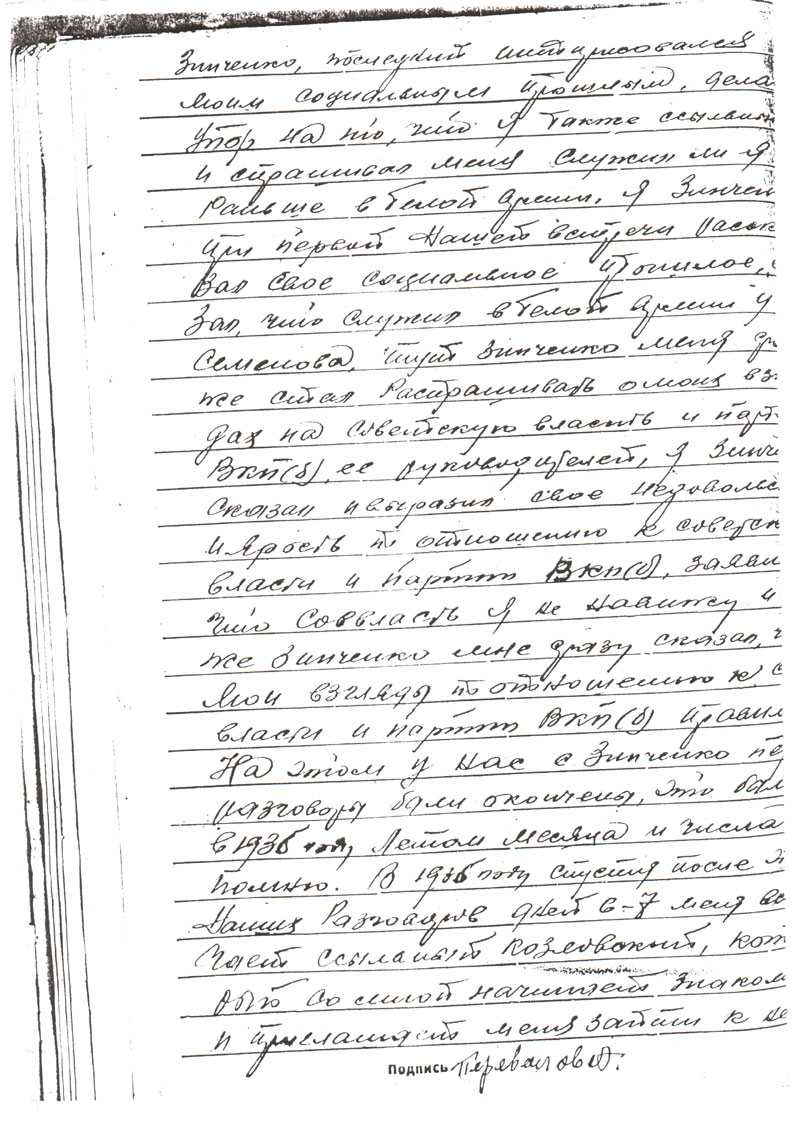 Зинченко, последний интирисовался
моим социальным прошлым, дела
упор на то, что я также ссыльны
и спрашивал меня служил ли я
раньше в белой армии, я Зинчен
при первой нашей встречи расск
зал свое социальное прошлое,
зал, что служил в белой армии у
Семенова, тут Зинченко меня ср
же стал распрашивать о моих взг
дах на советскую власть и парт
ВКП(б), ее руководителей, я Зинче
сказал и выразил свое недовольс
и ярость по отношению к советск
власти и партии ВКП(б), заяви
что соввласть я не навижу и
же Зинченко мне сразу сказал, ч
мои взгляды по отношению к с
власти и партии ВКП(б) правил
На этом у нас с Зинченко пе
разговоры были окончены, это был
в 1936 году, летом месяца и числа
помню. В 1936 году спустя после э
наших разговоров дней 6-7 меня вс
чает ссыльный Козловский, кот
рый со мной начинает знаком
и приглашает меня зайти к не
Подпись Перевалов